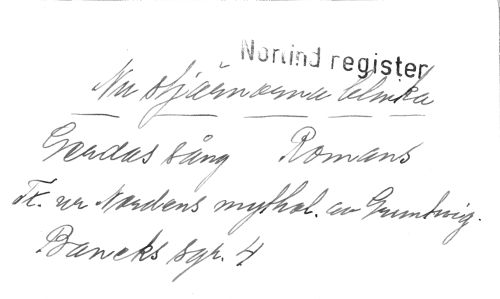 Norlind register
Nu stjärnorna blinka
Gerdas sång Romans
Tr. ur Nordens mythol. av Grundtvig.
Bancks sgr. 4